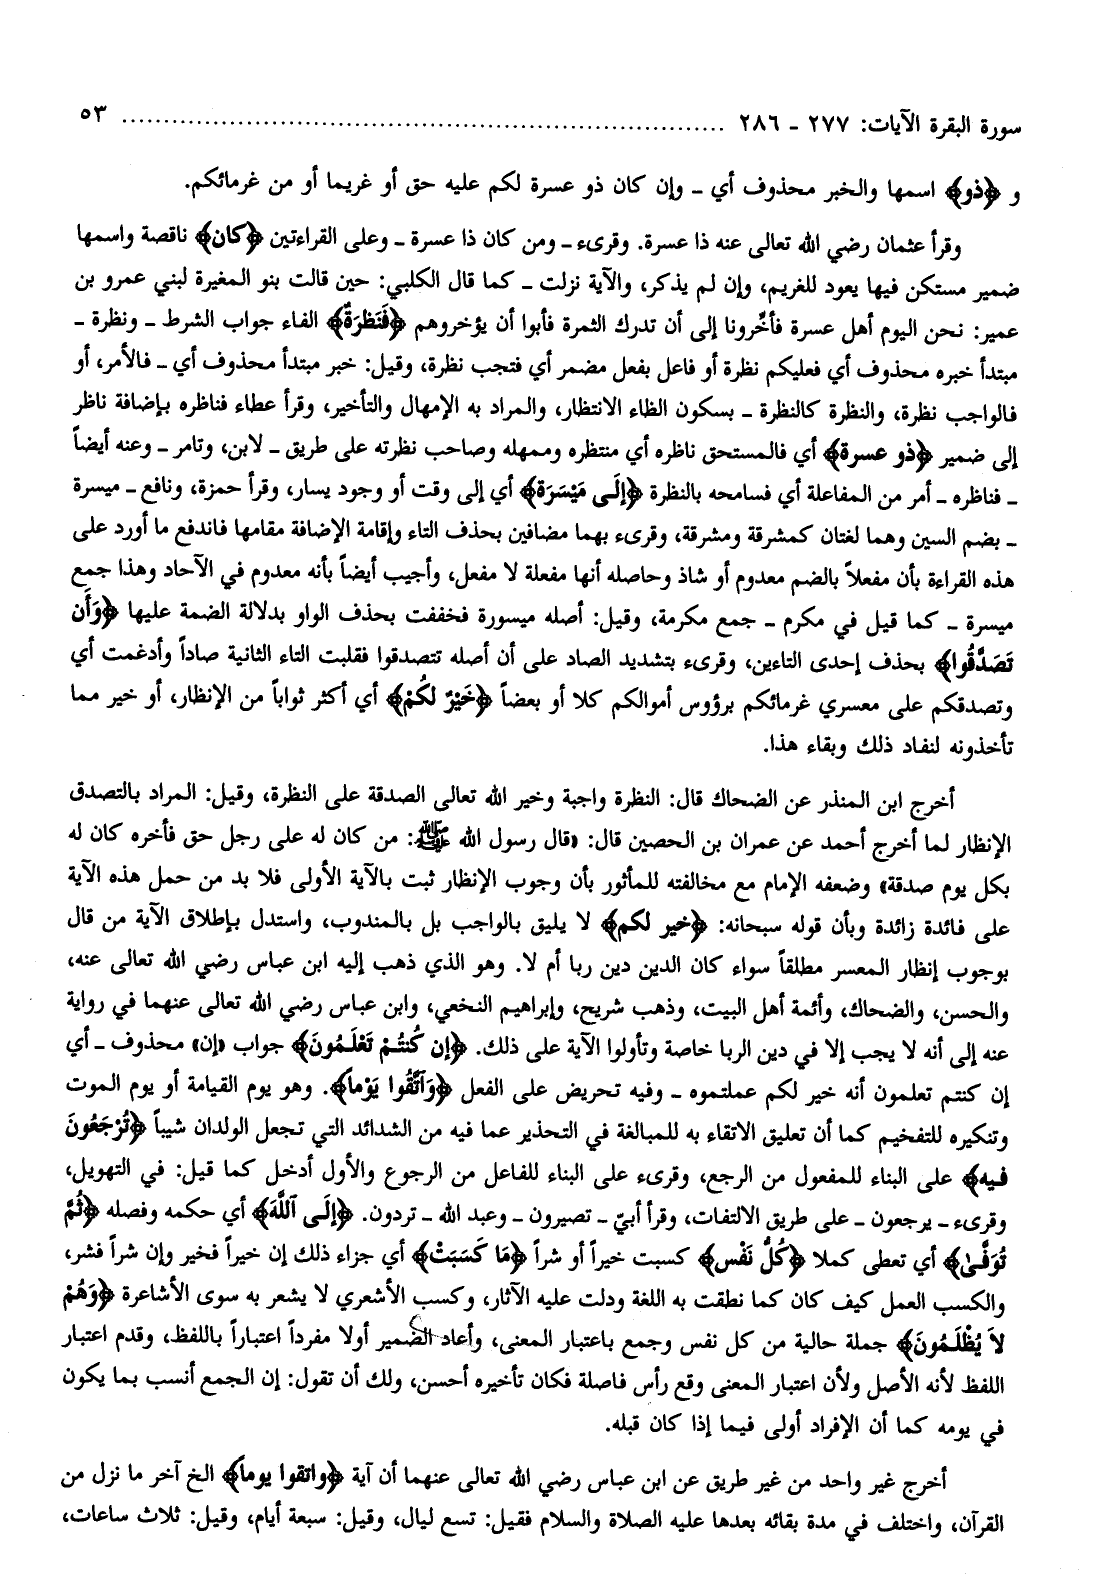 سورة البقرة الآيات: ٢٧٧ - ٢٨٦ ........................................ ٥٣
و ﴿ذو﴾ اسمها والخبر محذوف أي - وإن كان ذو عسرة لكم عليه حق أو غريما أو من غرمائكم.
وقرأ عثمان رضي الله تعالى عنه ذا عسرة. وقرىء - ومن كان ذا عسرة - وعلى القراءتين ﴿كان﴾ ناقصة واسمها
ضمير مستكن فيها يعود للغريم، وإن لم يذكر، والآية نزلت - كما قال الكلبي: حين قالت بنو المغيرة لبني عمرو بن
عمير: نحن اليوم أهل عسرة فأخّرونا إلى أن تدرك الثمرة فأبوا أن يؤخروهم ﴿فَنَظِرَةٌ﴾ الفاء جواب الشرط - ونظرة -
مبتدأ خبره محذوف أي فعليكم نظرة أو فاعل بفعل مضمر أي فتجب نظرة، وقيل: خبر مبتدأ محذوف أي - فالأمر، أو
فالواجب نظرة، والنظرة كالنظرة - بسكون الظاء الانتظار، والمراد به الإمهال والتأخير، وقرأ عطاء فناظره بإضافة ناظر
إلى ضمير ﴿ذو عسرة﴾ أي فالمستحق ناظره أي منتظره وممهله وصاحب نظرته على طريق - لابن، وتامر - وعنه أيضاً
- فناظره - أمر من المفاعلة أي فسامحه بالنظرة ﴿إلَى مَيْسَرَة﴾ أي إلى وقت أو وجود يسار، وقرأ حمزة، ونافع - ميسرة
- بضم السين وهما لغتان كمشرقة ومشرقة، وقرىء بهما مضافين بحذف التاء وإقامة الإضافة مقامها فاندفع ما أورد على
هذه القراءة بأن مفعلاً بالضم معدوم أو شاذ وحاصله أنها مفعلة لا مفعل، وأجيب أيضاً بأنه معدوم في الآحاد وهذا جمع
ميسرة - كما قيل في مكرم - جمع مكرمة، وقيل: أصله ميسورة فخففت بحذف الواو بدلالة الضمة عليها ﴿وَأَن
تَصَدَّقُوا﴾ بحذف إحدى التاءين، وقرىء بتشديد الصاد على أن أصله تتصدقوا فقلبت التاء الثانية صاداً وأدغمت أي
وتصدقكم على معسري غرمائكم برؤوس أموالكم كلا أو بعضاً ﴿خَيْرٌ لَكُمْ﴾ أي أكثر ثواباً من الإنظار، أو خير مما
تأخذونه لنفاد ذلك وبقاء هذا.
أخرج ابن المنذر عن الضحاك قال: النظرة واجبة وخير الله تعالى الصدقة على النظرة، وقيل: المراد بالتصدق
الإنظار لما أخرج أحمد عن عمران بن الحصين قال: «قال رسول الله ﷺ: من كان له على رجل حق فأخره كان له
بكل يوم صدقة» وضعفه الإمام مع مخالفته للمأثور بأن وجوب الإنظار ثبت بالآية الأولى فلا بد من حمل هذه الآية
على فائدة زائدة وبأن قوله سبحانه: ﴿خير لكم﴾ لا يليق بالواجب بل بالمندوب، واستدل بإطلاق الآية من قال
بوجوب إنظار المعسر مطلقاً سواء كان الدين دين ربا أم لا. وهو الذي ذهب إليه ابن عباس رضي الله تعالى عنه،
والحسن، والضحاك، وأئمة أهل البيت، وذهب شريح، وإبراهيم النخعي، وابن عباس رضي الله تعالى عنهما في رواية
عنه إلى أنه لا يجب إلا في دين الربا خاصة وتأولوا الآية على ذلك. ﴿إن كُنتُمْ تَعْلَمُونَ﴾ جواب «إن» محذوف - أي
إن كنتم تعلمون أنه خير لكم عملتموه - وفيه تحريض على الفعل ﴿وَٱتَّقُوا يَوْماً﴾. وهو يوم القيامة أو يوم الموت
وتنكيره للتفخيم كما أن تعليق الاتقاء به للمبالغة في التحذير عما فيه من الشدائد التي تجعل الولدان شيباً ﴿تُرْجَعُونَ
فيه﴾ على البناء للمفعول من الرجع، وقرىء على البناء للفاعل من الرجوع والأول أدخل كما قيل: في التهويل،
وقرىء - يرجعون - على طريق الالتفات، وقرأ أبيّ - تصيرون - وعبد الله - تردون. ﴿إلَى ٱللَّه﴾ أي حكمه وفصله ﴿ثُمَّ
تُوَفَّىٰ﴾ أي تعطى كملا ﴿كُلُّ نَفْس﴾ كسبت خيراً أو شراً ﴿مَا كَسَبَتْ﴾ أي جزاء ذلك إن خيراً فخير وإن شراً فشر،
والكسب العمل كيف كان كما نطقت به اللغة ودلت عليه الآثار، وكسب الأشعري لا يشعر به سوى الأشاعرة ﴿وَهُمْ
لاَ يُظْلَمُونَ﴾ جملة حالية من كل نفس وجمع باعتبار المعنى، وأعاد الضمير أولا مفرداً اعتباراً باللفظ، وقدم اعتبار
اللفظ لأنه الأصل ولأن اعتبار المعنى وقع رأس فاصلة فكان تأخيره أحسن، ولك أن تقول: إن الجمع أنسب بما يكون
في يومه كما أن الإفراد أولى فيما إذا كان قبله.
أخرج غير واحد من غير طريق عن ابن عباس رضي الله تعالى عنهما أن آية ﴿واتقوا يوماً﴾ الخ آخر ما نزل من
القرآن، واختلف في مدة بقائه بعدها عليه الصلاة والسلام فقيل: تسع ليال، وقيل: سبعة أيام، وقيل: ثلاث ساعات،